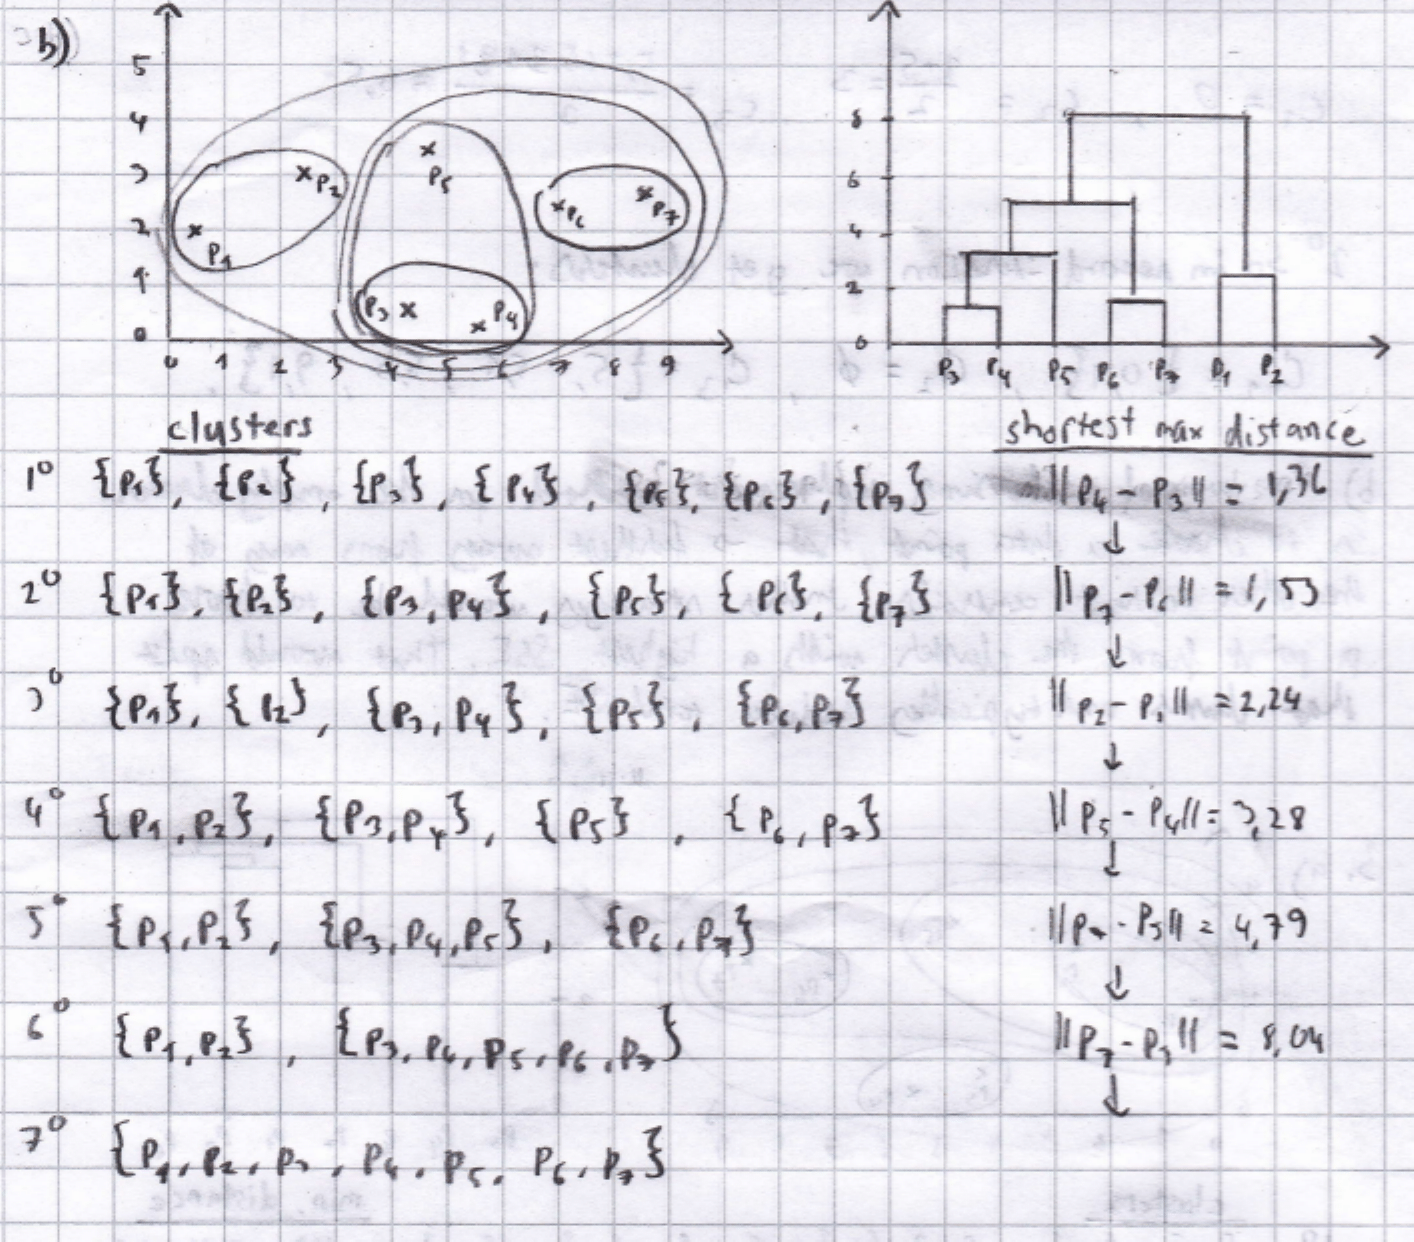 b)
5
4
3
2
1
0
0 1 2 3 4 5 6 7 8 9
P5
P2
P6 P7
P1
P3 P4
8
6
4
2
0
P3 P4 P5 P6 P7 P1 P2
clusters shortest max distance
1° {P1}, {P2}, {P3}, {P4}, {P5}, {P6}, {P7} ||P4 - P3|| = 1,36
↓
2° {P1}, {P2}, {P3, P4}, {P5}, {P6}, {P7} ||P7 - P6|| = 1,53
↓
3° {P1}, {P2}, {P3, P4}, {P5}, {P6, P7} ||P2 - P1|| = 2,24
↓
4° {P1, P2}, {P3, P4}, {P5}, {P6, P7} ||P5 - P4|| = 3,28
↓
5° {P1, P2}, {P3, P4, P5}, {P6, P7} ||P7 - P3|| = 4,79
↓
6° {P1, P2}, {P3, P4, P5, P6, P7} ||P7 - P1|| = 8,04
↓
7° {P1, P2, P3, P4, P5, P6, P7}